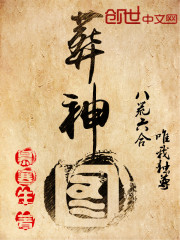 创世中文网
葬神
八荒六合
唯我独尊
寒生 著